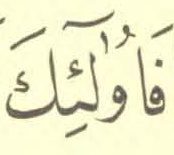 فَأُولَٰٓئِكَ